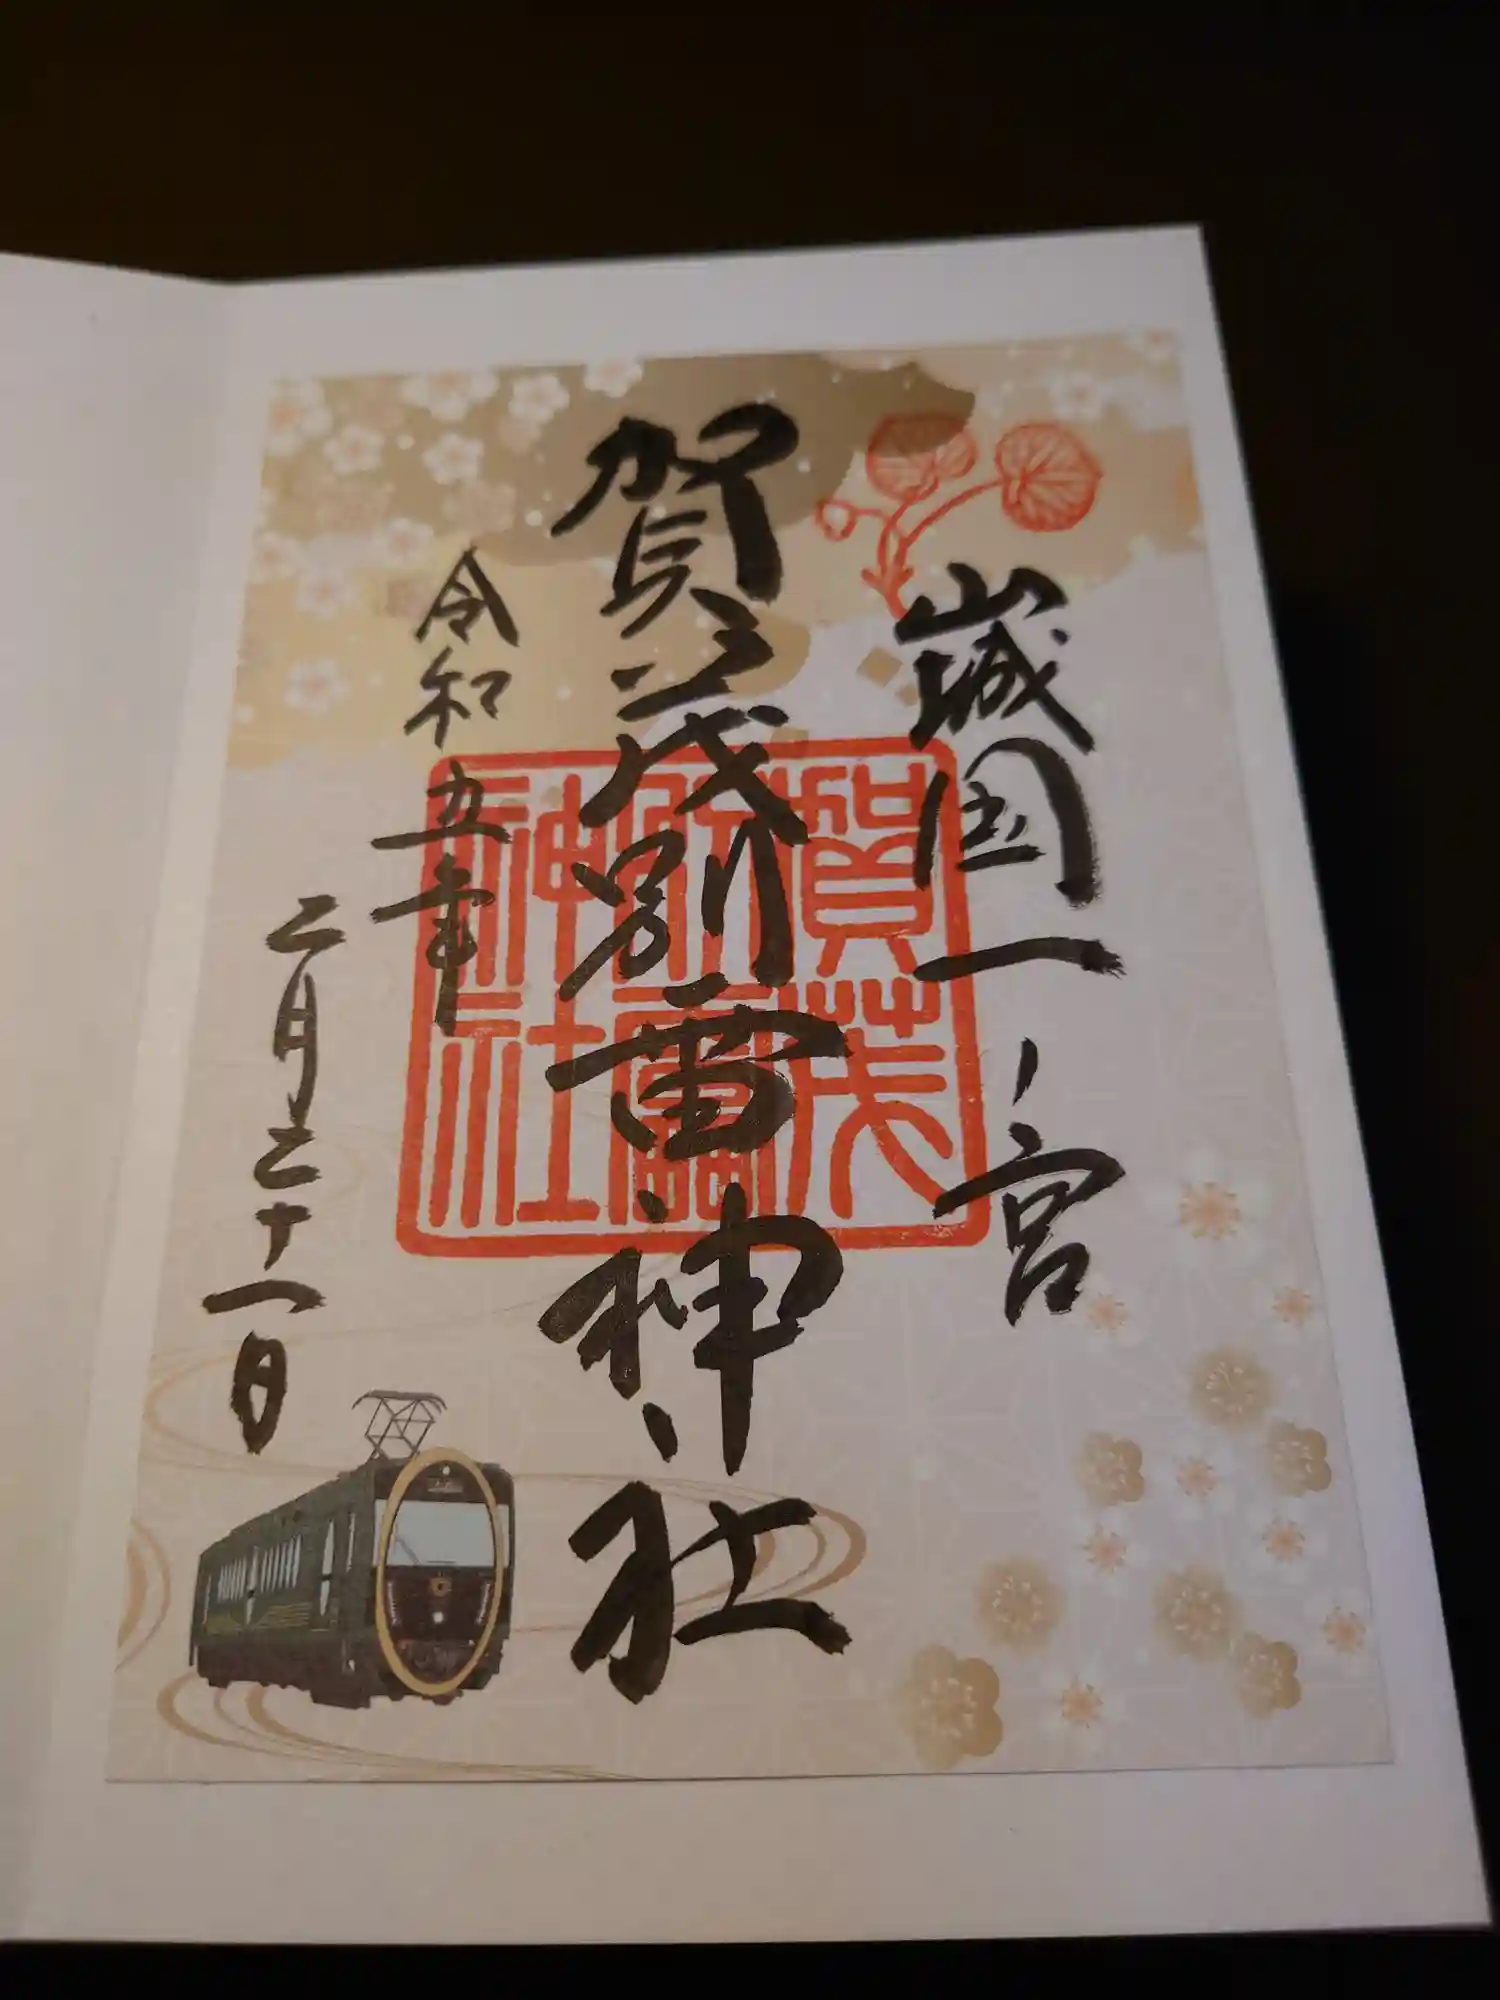 山城国一ノ宮
賀茂別雷神社
賀茂
別雷
神社
令和五年
二月二十一日